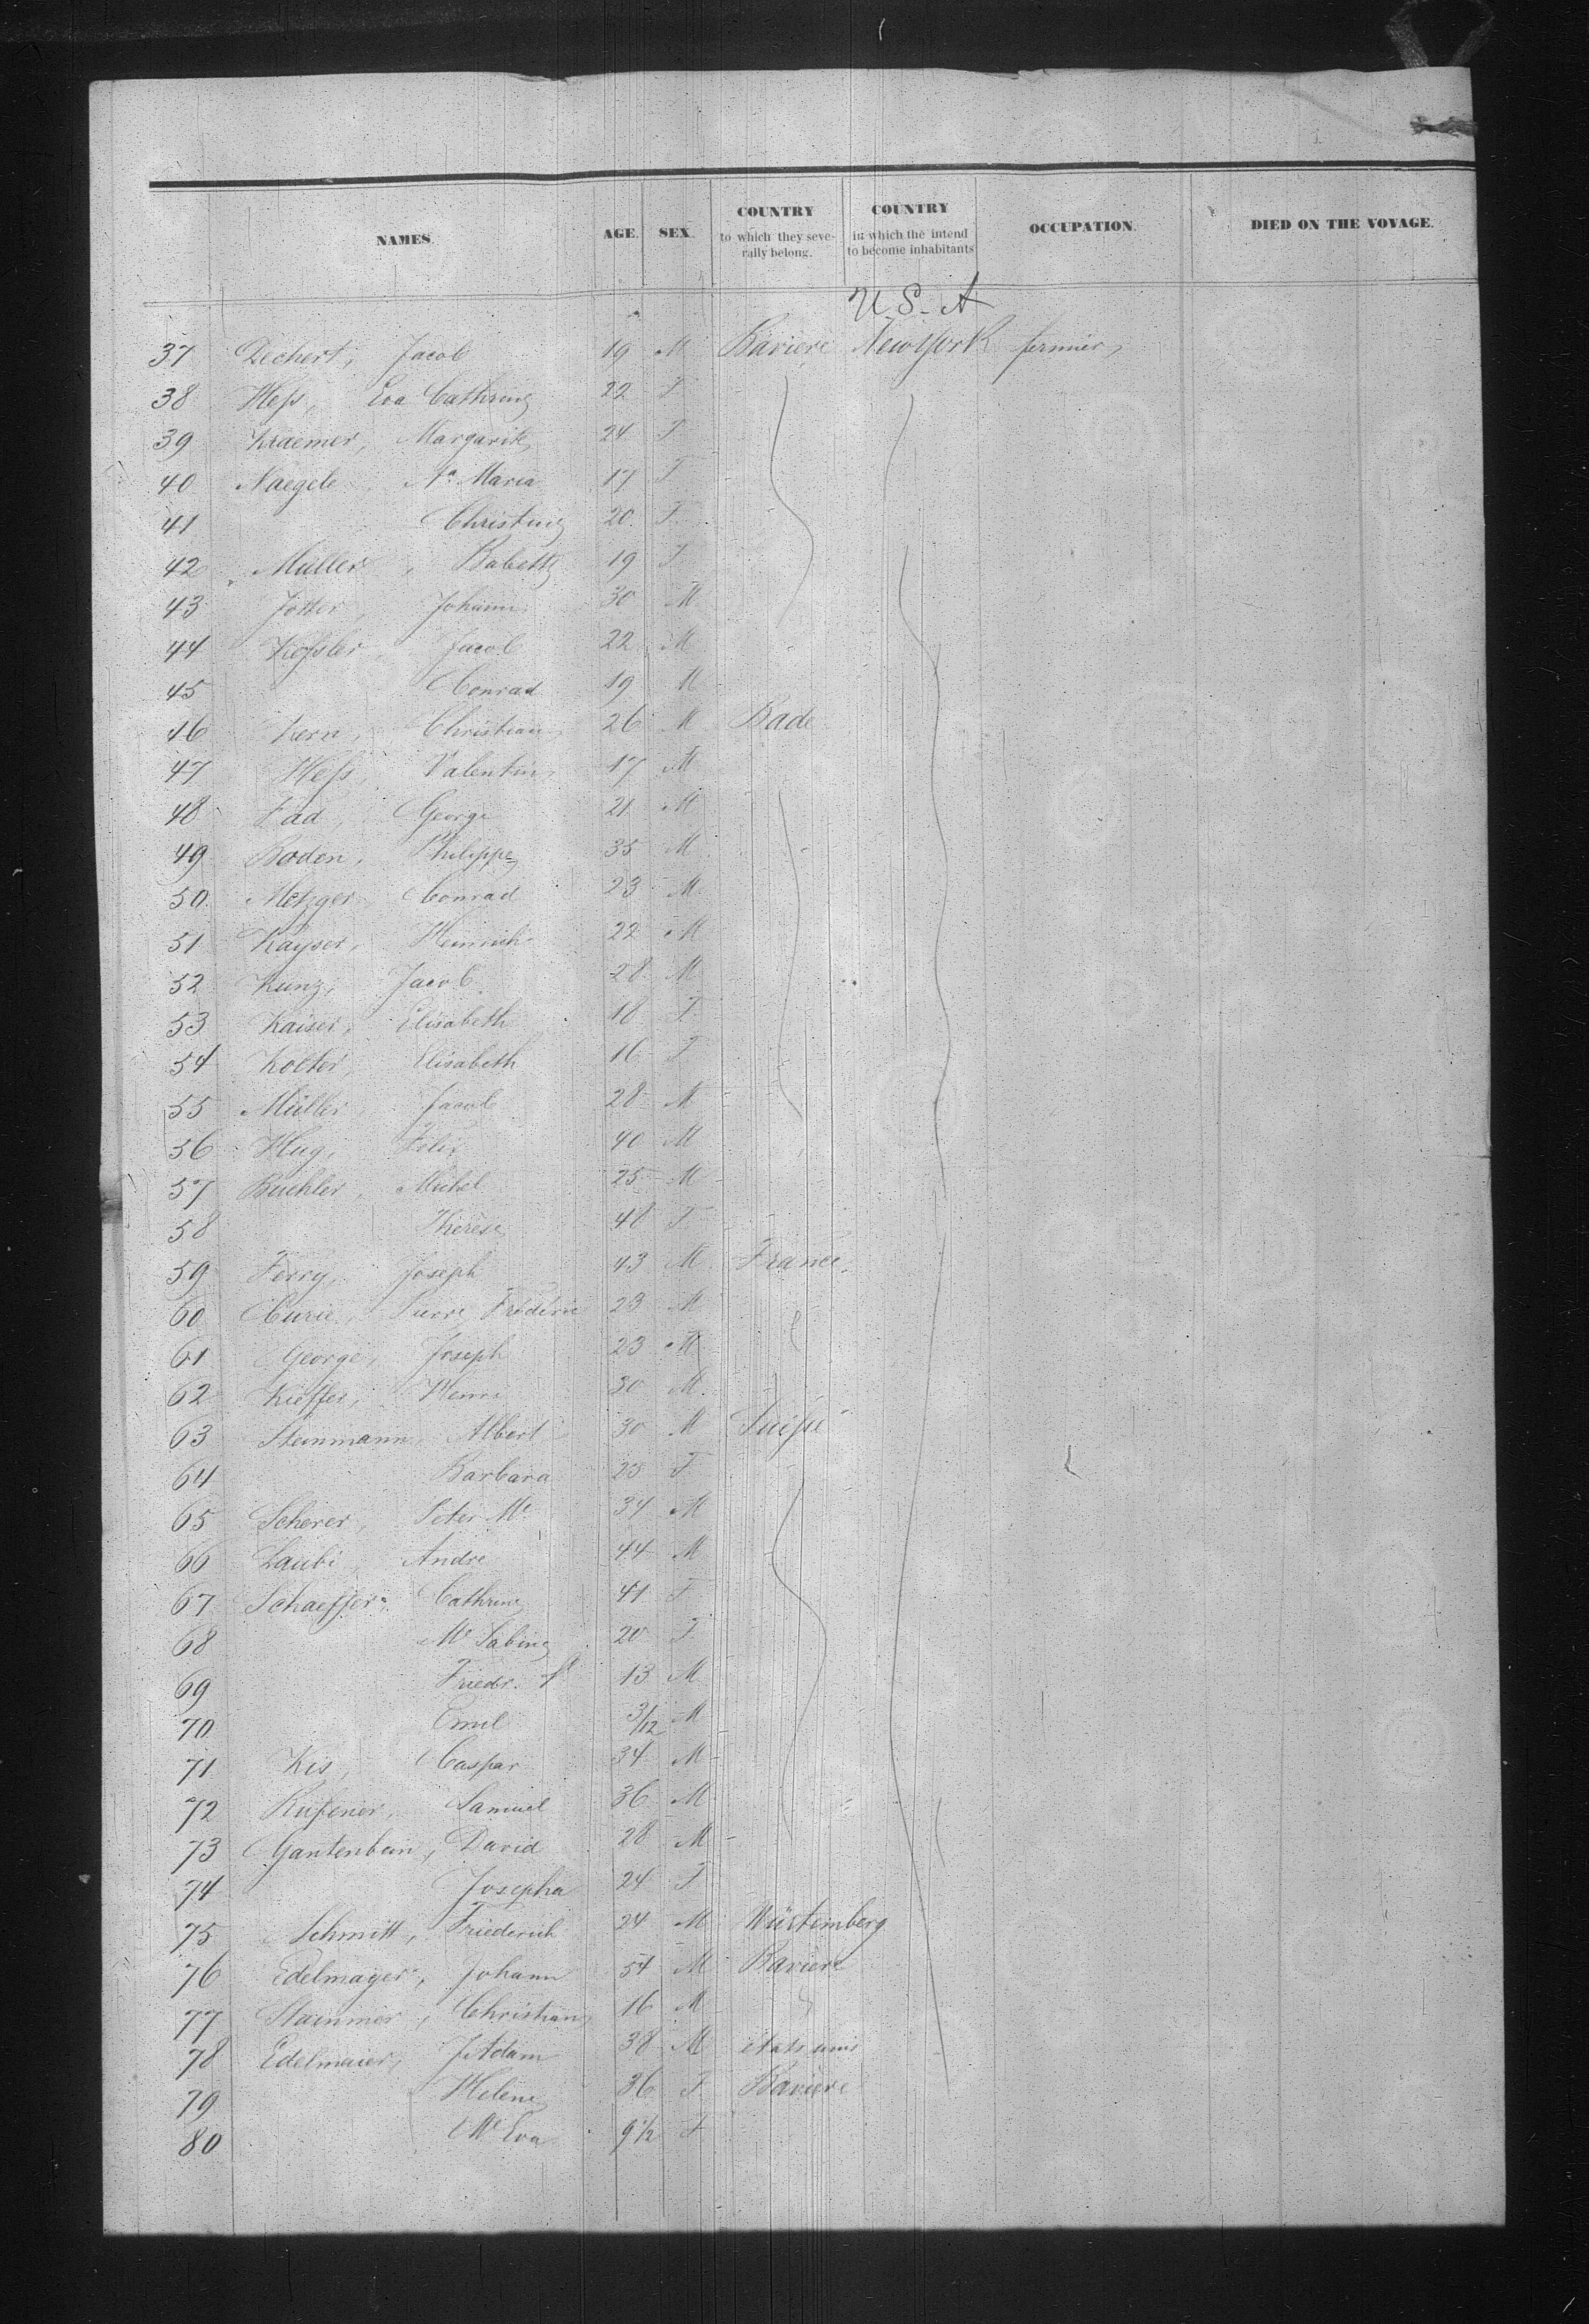 NAMES. AGE. SEX. COUNTRY to which they seve- rally belong. COUNTRY in which the intend to become inhabitants OCCUPATION. DIED ON THE VOYAGE.
U. S. A
37 Dechert, Jacob 19 M Baviere New York fermier,
38 Heſs, Eva Cathrine 22 F
39 Kraemer, Margarite 24 F
40 Naegele, Aª Maria 17 F
41 Christine 20 F
42 Müller, Babette 19 F
43 Johann 30 M
44 Keſsler Jacob 22 M
45 Conrad 19 M
46 Kern, Christian 26 M Bade
47 Heſs, Valentin 17 M
48 Fad, George 21 M
49 Boden, Philippe 35 M
50 Metzger Conrad 23 M
51 Kayser, Heinrich 22 M
52 Kunz, Jacob 28 M
53 Kaiser, Elisabeth 18 F
54 Elisabeth 16 F
55 Müller Jacob 28 M
56 Hug, Felix 40 M
57 Buchler, Michel 25 M
58 Therese 48 F
59 Ferry, Joseph 43 M France
60 Curie, Pierre Frederic 23 M
61 George, Joseph 23 M
62 Kieffer, Henri 30 M
63 Steinmann, Albert 30 M Suiſse
64 Barbara 23 F
65 Scherer, Peter 34 M
66 Laubi, Andre 44 M
67 Schaeffer, Cathrine 41 F
68 Mᵉ Sabine 20 F
69 Friedr. 13 M
70 Emil 3/12 M
71 Kis, Caspar 34 M
72 Samuel 36 M
73 Gantenbein, David 28 M
74 Josepha 24 F
75 Schmitt, Friederich 24 M Würtemberg
76 Edelmayer, Johann 54 M Baviere
77 Christian 16 M
78 Edelmaier, J Adam 38 M états unis
79 Helene 36 F Baviere
80 Mᵉ Eva 9½ F